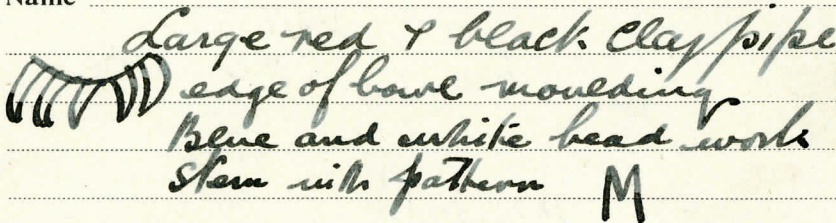 Name
Large red & black clay pipe
edge of bowl moulding
Blue and white bead work
stem with pattern M